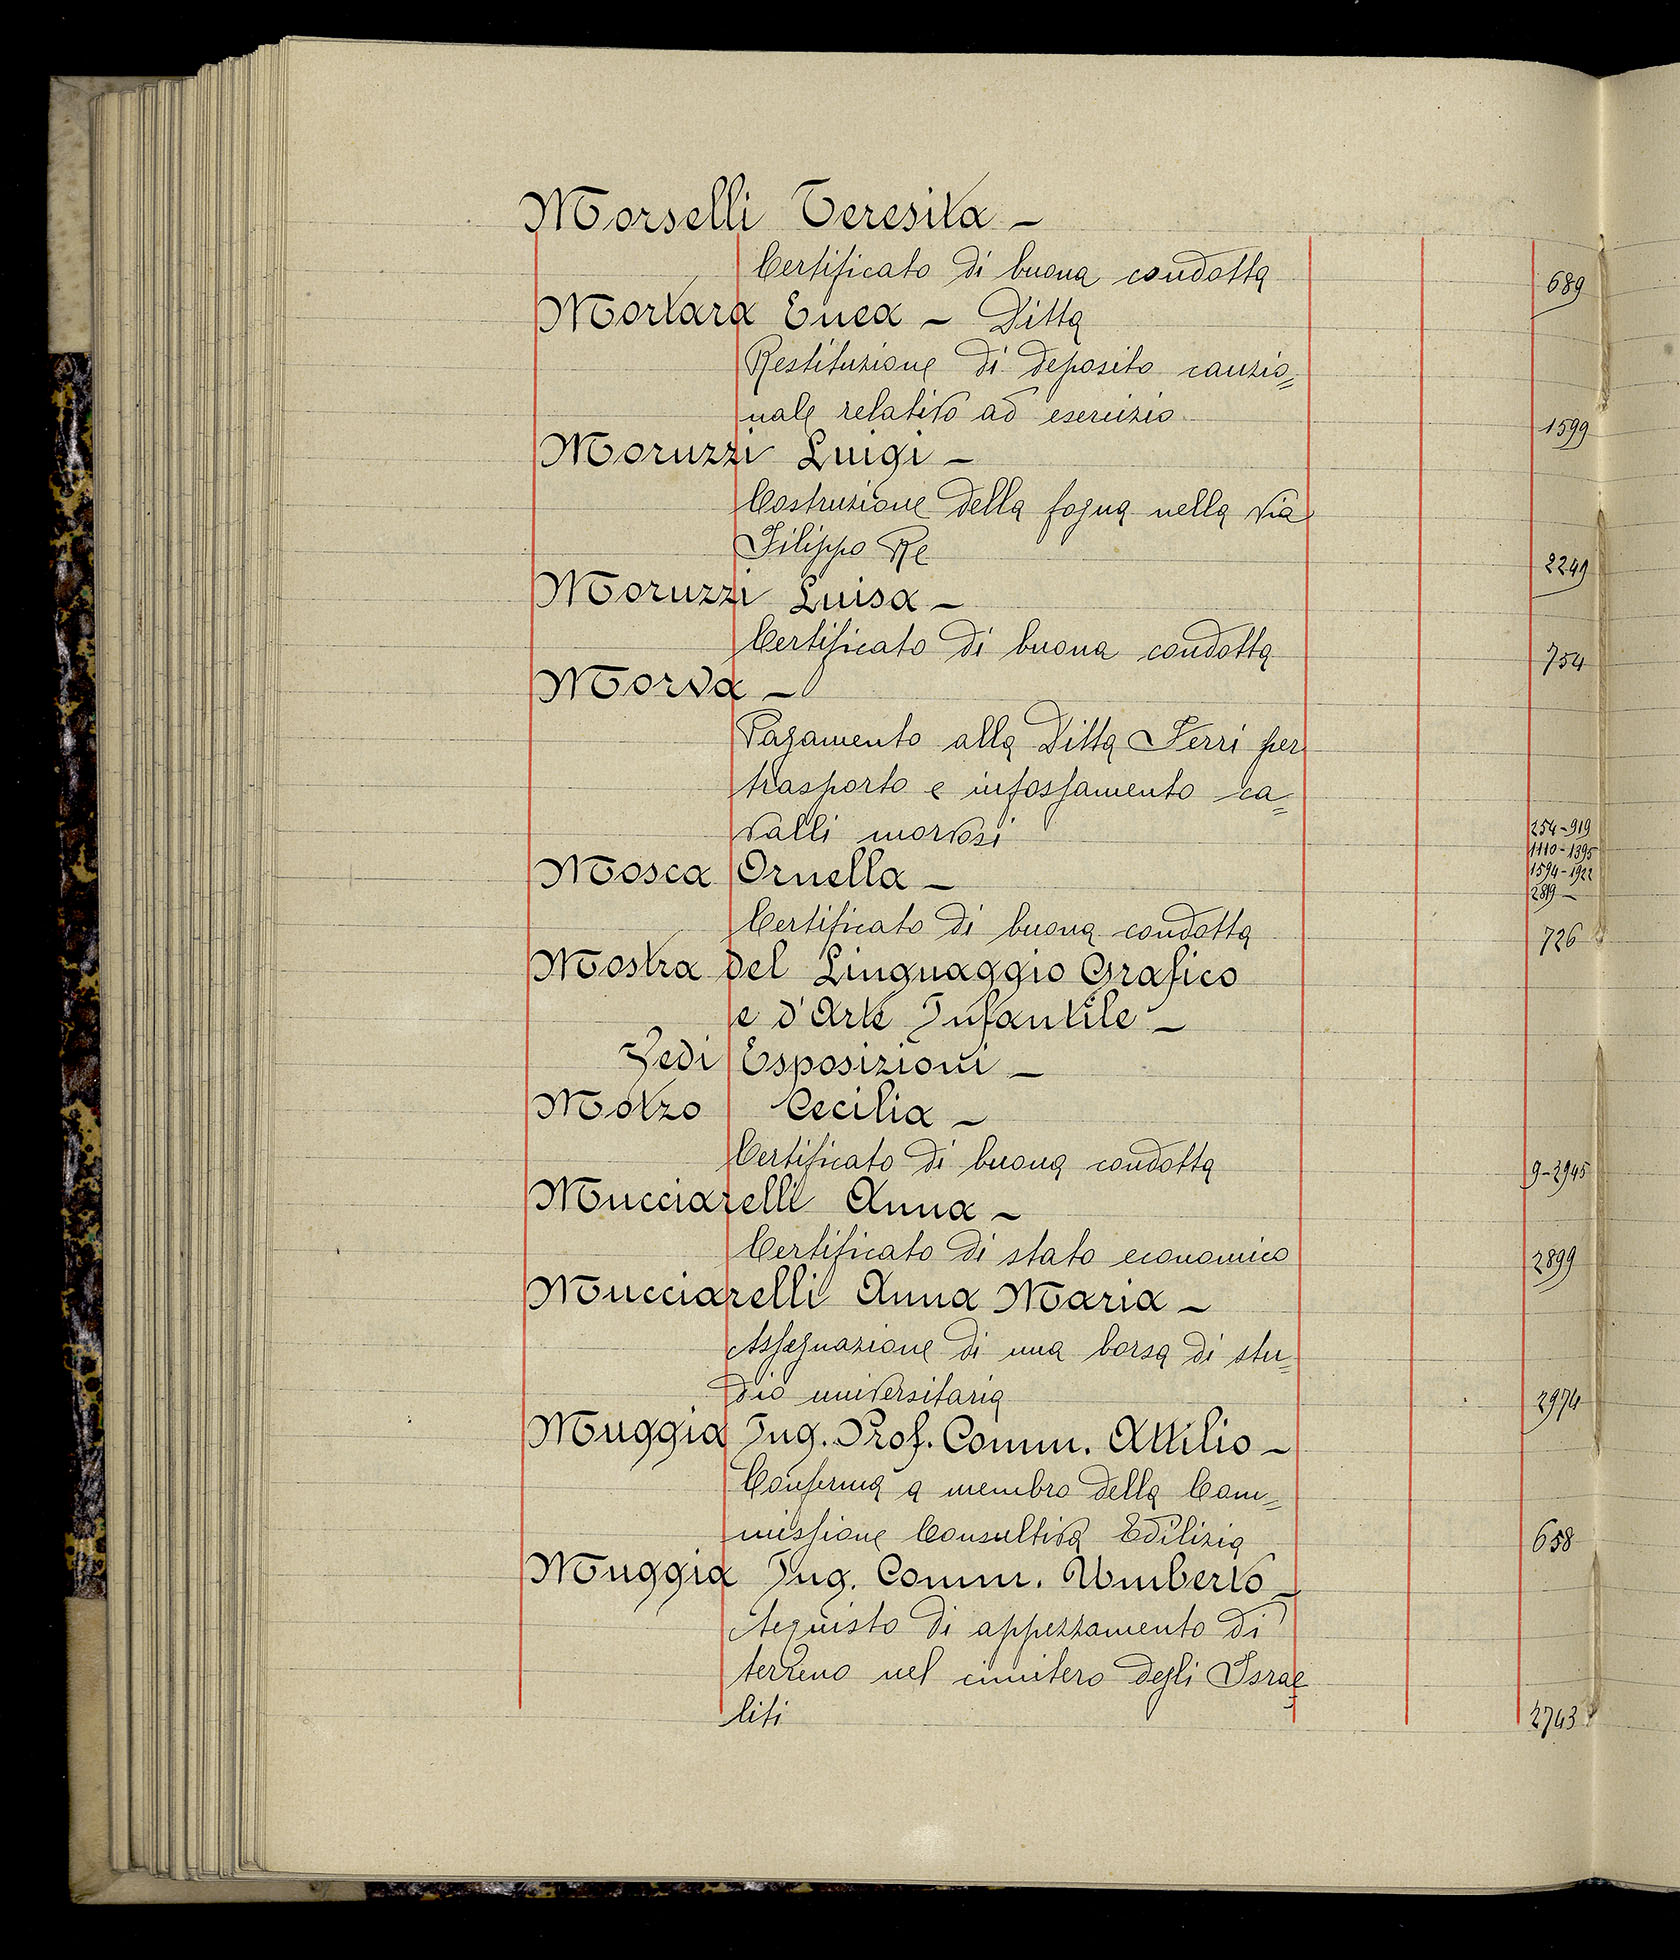 Morselli Teresita –
Certificato di buona condotta 689
Mortara Enea – Ditta
Restituzione di deposito cauzio=
nale relativo ad esercizio 1599
Moruzzi Luigi –
Costruzione della fogna nella via
Filippo Re 2249
Moruzzi Luisa –
Certificato di buona condotta 754
Morva –
Pagamento alla Ditta Ferri per
trasporto e infossamento ca=
valli morvosi 254-919
1110-1395
1594-1922
2819 –
Mosca Ornella –
Certificato di buona condotta 726
Mostra del Linguaggio Grafico
e d'Arte Infantile –
Vedi Esposizioni –
Motzo Cecilia –
Certificato di buona condotta 9-2945
Mucciarelli Anna –
Certificato di stato economico 2899
Mucciarelli Anna Maria –
Assegnazione di una borsa di stu=
dio universitaria 2974
Muggia Ing. Prof. Comm. Attilio –
Conferma a membro della Com=
missione Consultiva Edilizia 658
Muggia Ing. Comm. Umberto –
Acquisto di appezzamento di
terreno nel cimitero degli Israe
liti 2743